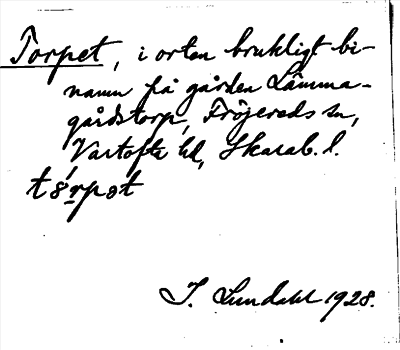 Torpet, i orten brukligt bi-
namn på gården Lämma-
gårdstorp, Fröjereds sn,
Vartofta hd, Skarab. l.
I. Lundahl 1928.